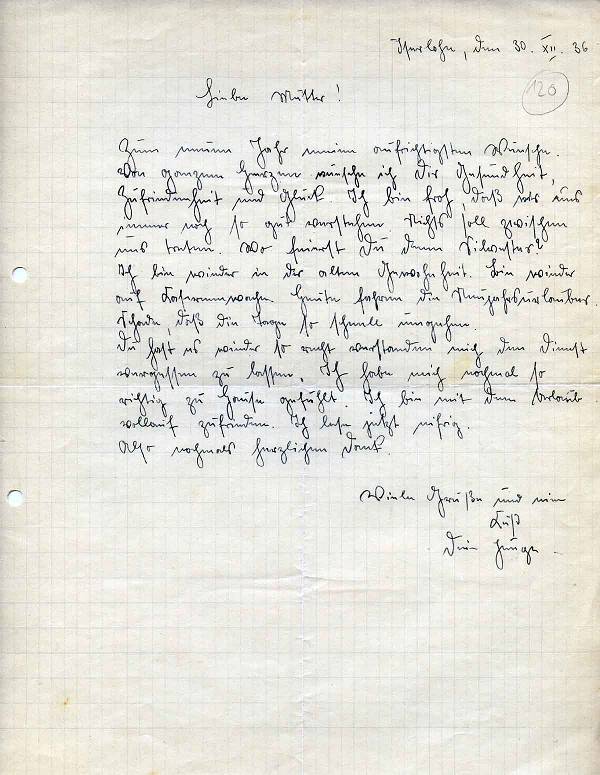 Iserlohn, den 30. XII. 36
120
Liebe Mutter!
Zum neuen Jahr meine aufrichtigsten Wünsche.
Von ganzem Herzen wünsche ich Dir Gesundheit,
Zufriedenheit und Glück. Ich bin froh daß wir uns
immer noch so gut verstehen. Nichts soll zwischen
uns treten. Wo feierst Du denn Silvester?
Ich bin wieder in der alten Gewohnheit. Bin wieder
auf Kasernenwache. Heute fahren die Neujahrsurlauber.
Schade daß die Tage so schnell umgehen.
Du hast es wieder so recht verstanden mich den Dienst
vergessen zu lassen. Ich habe mich nochmal so
richtig zu Hause gefühlt. Ich bin mit dem Urlaub
vollauf zufrieden. Ich lese jetzt eifrig.
Also nochmals herzlichen Dank.
Viele Grüße und ein
Kuß
Dein Junge